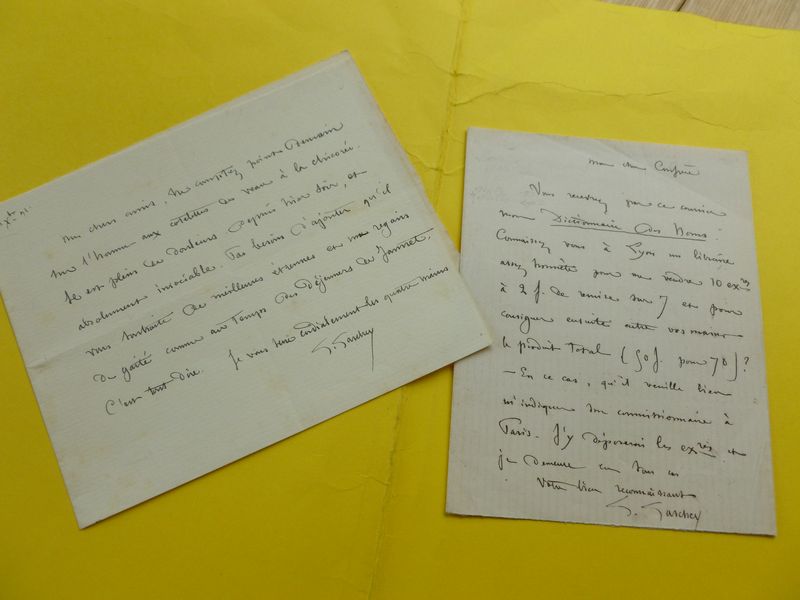 Mes chers amis, ne comptez point demain
sur l'homme aux côtelettes de veau à la chicorée.
Je est plein de douleurs depuis hier soir, et
absolument insociable. Pas besoin d'ajouter qu'il
vous souhaite de meilleures étrennes et un regain
de gaîté comme au temps des déjeuners de Janvret.
C'est tout dire. Je vous serre cordialement les quatre mains
L. Larchey
mon cher Confrère
Vous recevrez par ce courrier
mon Dictionnaire des Noms.
Connaissez vous à Lyon un libraire
assez honnête pour me vendre 10 exres
à 2 f. de remise sur 7 et pour
consigner ensuite entre vos mains
le produit total (50 f. pour 70)?
— En ce cas, qu'il veuille bien
m'indiquer son commissionnaire à
Paris. J'y déposerai les exres et
je demeure en tous cas
votre bien reconnaissant
L. Larchey